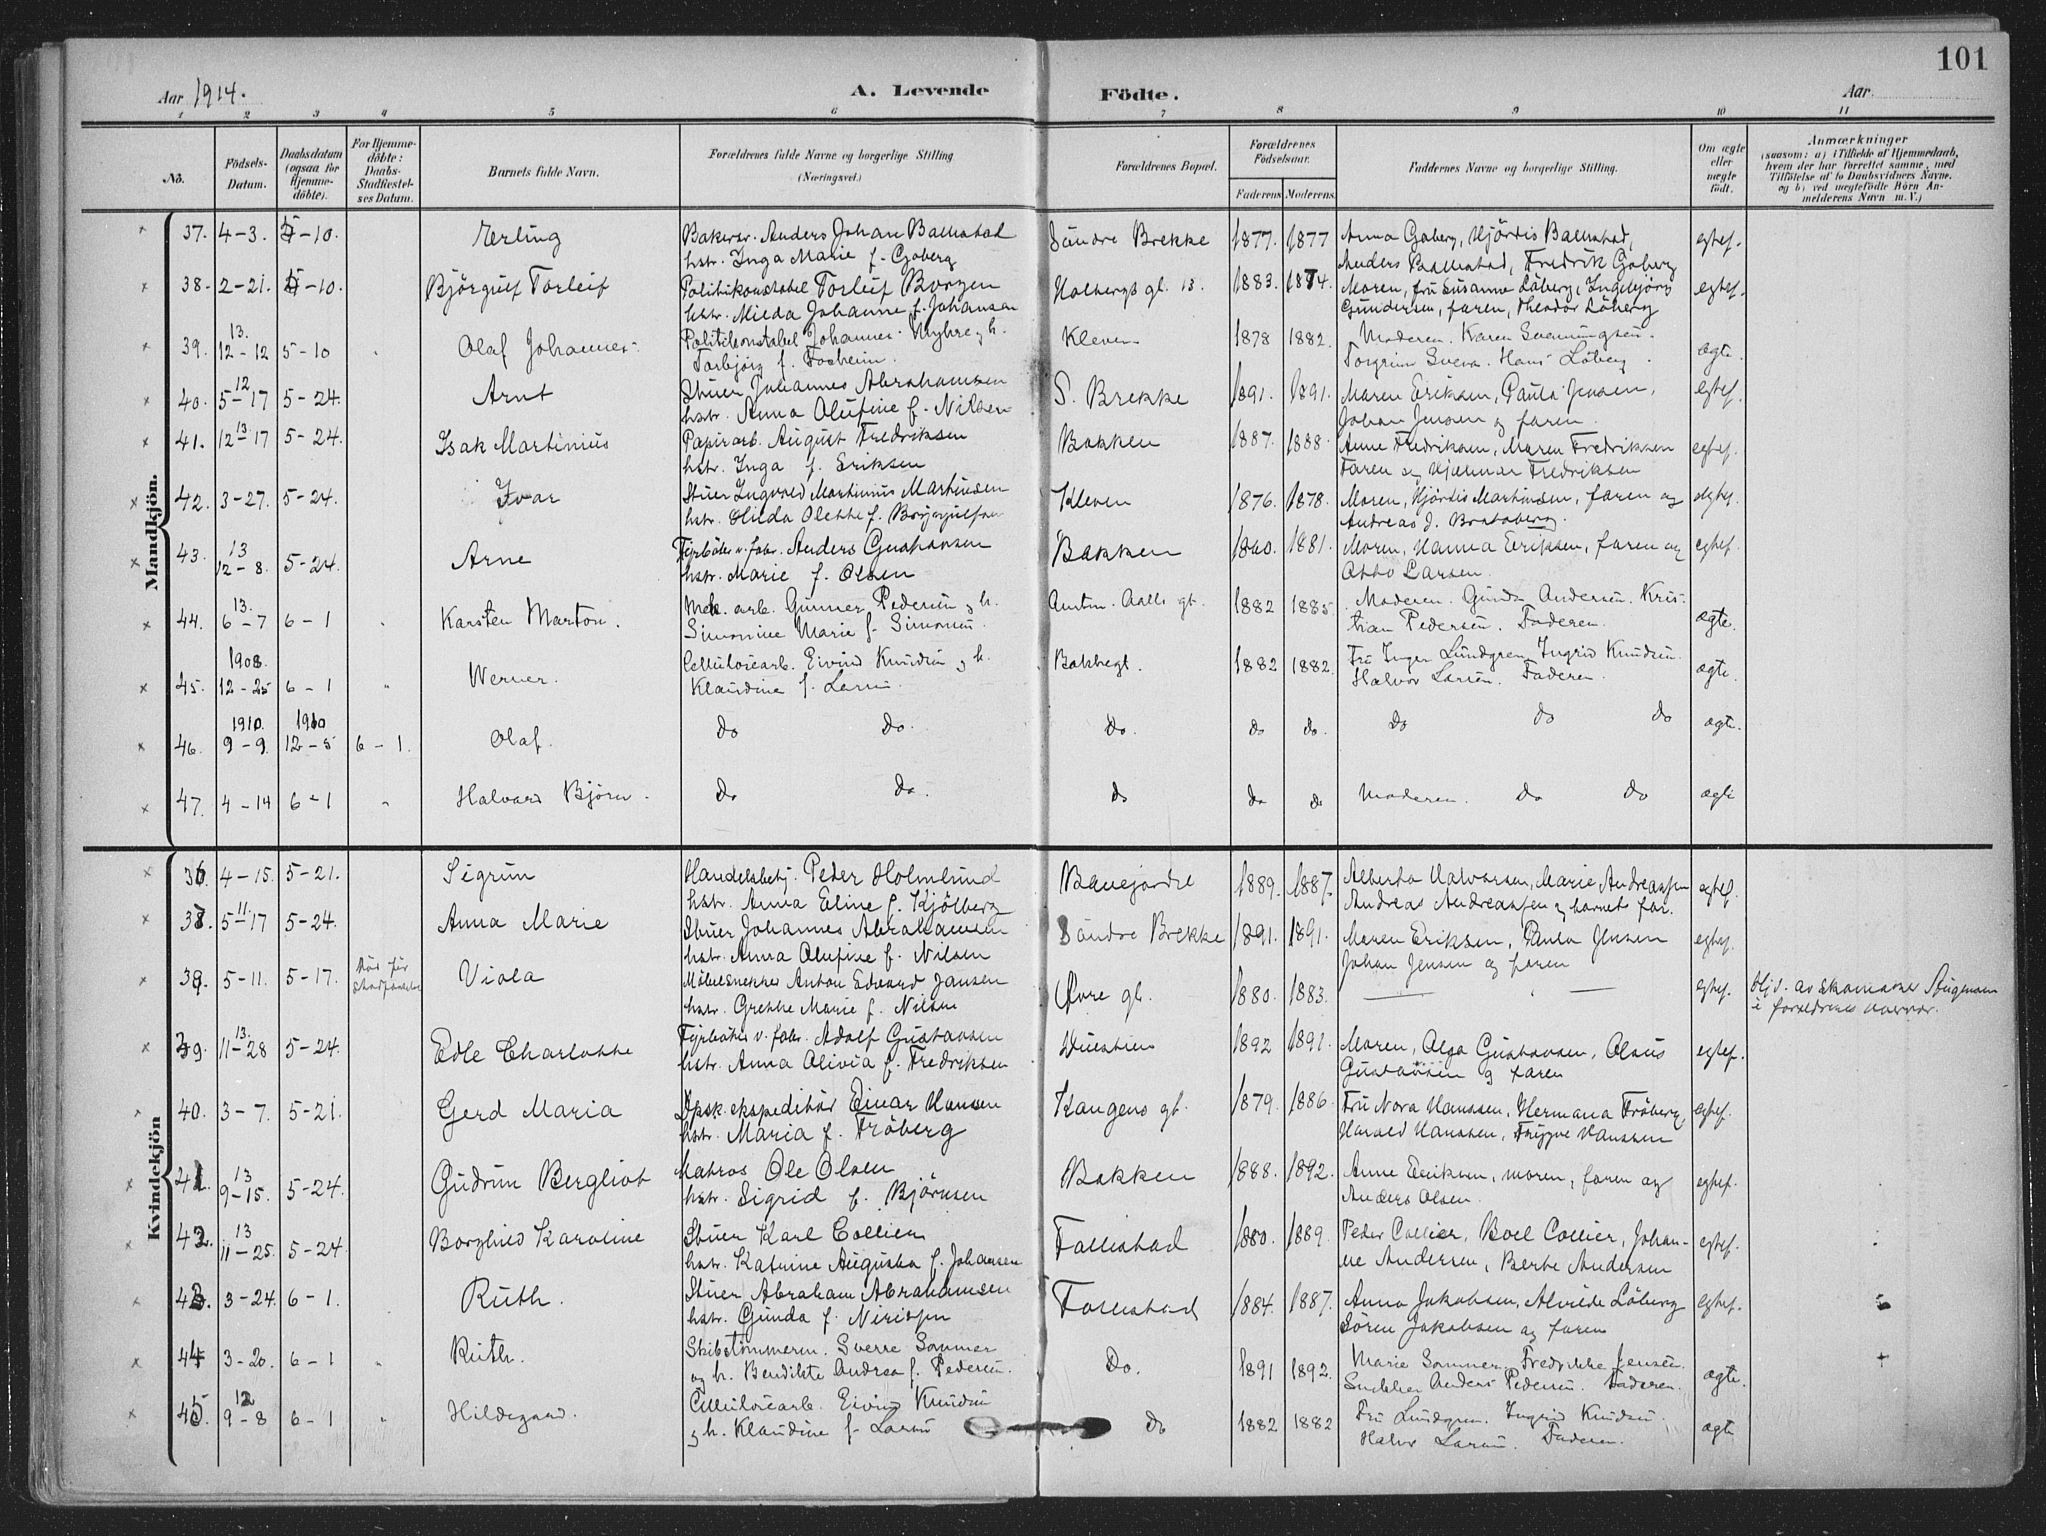 101
Aar 1914.
A. Levende Födte.
Aar
1 2 3 4 5 6 7 8 9 10 11
No.
Födsels-Datum.
Daabsdatum (ogsaa for Hjemmedöbte).
For Hjemmedöbte: Daabs-Stadfæstelses Datum.
Barnets fulde Navn.
Forældrenes fulde Navne og borgerlige Stilling (Næringsvei.)
Forældrenes Bopæl.
Forældrenes Födselsaar.
Faderens. Moderens.
Faddernes Navne og borgerlige Stilling.
Om ægte eller uægte födt.
Anmærkninger
(saasom: a) i Tilfælde af Hjemmedaab,
hvem der har forrettet samme, med
Tilföielse af to Daabsvidners Navne,
og b) ved uægtefödte Börn An-
melderens Navn m. V.)
Mandkjön.
37. 4-3. 5-10. Erling Anders Johan Ballestad Söndre Brekke 1877. 1877 Anna Goberg, Hjördis Ballestad, egtef.
hstr. Inga Marie f. Goberg Anders Ballestad, Fredrik Goberg
38. 2-21. 5-10. Bjørgulf Torleif Politikonstabel Torleif Borgen Holbergs gt. 13. 1883. 1874. Moren, fru Susanne Löberg, Ingebjörg egtef.
hstr. Milda Johanne f. Johansen Gundersen, faren, Theodor Löberg
39. 13. 12-12 5-10 Olaf Johannes Politikonstabel Johannes Myhre og h. Kleven 1878 1882. Moderen. Karen Svenningsen. ægte.
Torbjörg f. Fosheim. Torgrim Sveva. Hans Löberg.
40. 12 5-17 5-24. Arnt Stuer Johannes Abrahamsen S. Brekke 1891. 1891. Maren Eriksen, Paula Jensen, egtef.
hstr. Anna Olufine f. Nilsen Johan Jensen og faren.
41. 13 12-17 5-24. Isak Martinius Papirarb. August Fredriksen Bakken 1887. 1888. Anne Fredriksen, Maren Fredriksen egtef.
hstr. Inga f. Eriksen Faren og Hjalmar Fredriksen
42. 3-27. 5-24. Ivar Stuer Ingvald Martinius Martinsen Kleven 1876. 1878. Moren, Hjördis Martinsen, faren og egtef.
hstr. Hilda Olette f. Andreas J. Bratsberg.
43. 13 12-8. 5-24. Arne Fyrböter v. fabr. Anders Gustavsen Bakken 1881. Moren, Hanna Eriksen, faren og egtef.
hstr. Marie f. Olsen Otto Larsen.
44. 13. 6-7 6-1 Karsten Marton. Mek. arb. Gunnar Pedersen og h. Aalls gt. 1882 1885. Moderen. Gunda Andersen. Kris- ægte.
Simonine Marie f. Simonsen. tian Pedersen. Faderen.
45. 1908. 12-25 6-1 Werner. Cellulosearb. Eivind Knudsen og h. Bakkegt. 1882 1882. Fru Inger Lundgren, Ingrid Knudsen. ægte.
Klaudine f. Larsen. Halvor Larsen. Faderen.
46. 1910. 9-9. 1910 12-5 6-1. Olaf. Do Do. Do. Do Do. Do Do Do ægte.
47. 4-14 6-1 Halvard Björn. Do Do. Do Do Do Moderen. Do Do ægte
Kvindekjön
36. 4-15. 5-21. Sigrun Handelsbetj. Peder Holmlund 1889. 1887. Alberta Halvorsen, Marie Andreassen egtef.
hstr. Anna Eline f. Kjölberg Andreas Andreassen og barnets far.
37. 11. 5-17 5-24. Anna Marie Stuer Johannes Abrahamsen Söndre Brekke 1891. 1891. Maren Eriksen, Paula Jensen egtef.
hstr. Anna Olufine f. Nilsen Johan Jensen og faren
5-11. 5-17. död för Viola Möbelsnekker Anton Edvard Jansen Övre gt. 1880. 1883. egtef. Hjd. av skomaker
hstr. Grethe Marie f. Nilsen i foreldrenes nærvær.
39. 13. 11-28 5-24. Edle Charlotte Fyrböter v. fabr. Adolf Gustavsen 1892 1891. Moren, Olga Gustavsen, Olaus egtef.
hstr. Anna Olivia f. Fredriksen Gustavsen og faren
40. 3-7. 5-21. Gerd Maria Dpsk. ekspeditör Einar Hansen Kongens gt. 1879. 1886. Fru Nora Hanssen, Hermana Fröberg, egtef.
hstr. Maria f. Fröberg Harald Hanssen, Trygve Hanssen
41. 13 9-15. 5-24. Gudrun Bergliot Matros Ole Olsen Bakken 1888. 1892. Anne Eriksen, moren, faren og egtef.
hstr. Sigrid f. Björnsen Anders Olsen.
42. 13 11-25. 5-24. Borghild Karoline Stuer Karl Collier Follestad 1880. 1889. Peder Collier, Boel Collier, Johan- egtef.
hstr. Katrine Augusta f. Johansen ne Andersen, Berte Andersen
43. 3-24. 6-1. Ruth. Stuer Abraham Abrahamsen Follestad 1884. 1887. Anna Jakobsen, Alvilde Löberg egtef.
hstr. Gunda f. Sören Jakobsen og faren
44 3-20. 6-1 Ruth. Skibstömmerm. Sverre Sommer Do. 1891 1892. Marie Sommer. Fredrikke Jensen. ægte.
og h. Bendikte Andrea f. Pedersen. Snekker Anders Pedersen. Faderen.
45. 12 9-8 6-1 Hildegard. Cellulosearb. Eivind Knudsen Do 1882 1882 Fru Lundgren. Ingrid Knudsen. ægte
og h. Klaudine f. Larsen Halvor Larsen. Faderen.